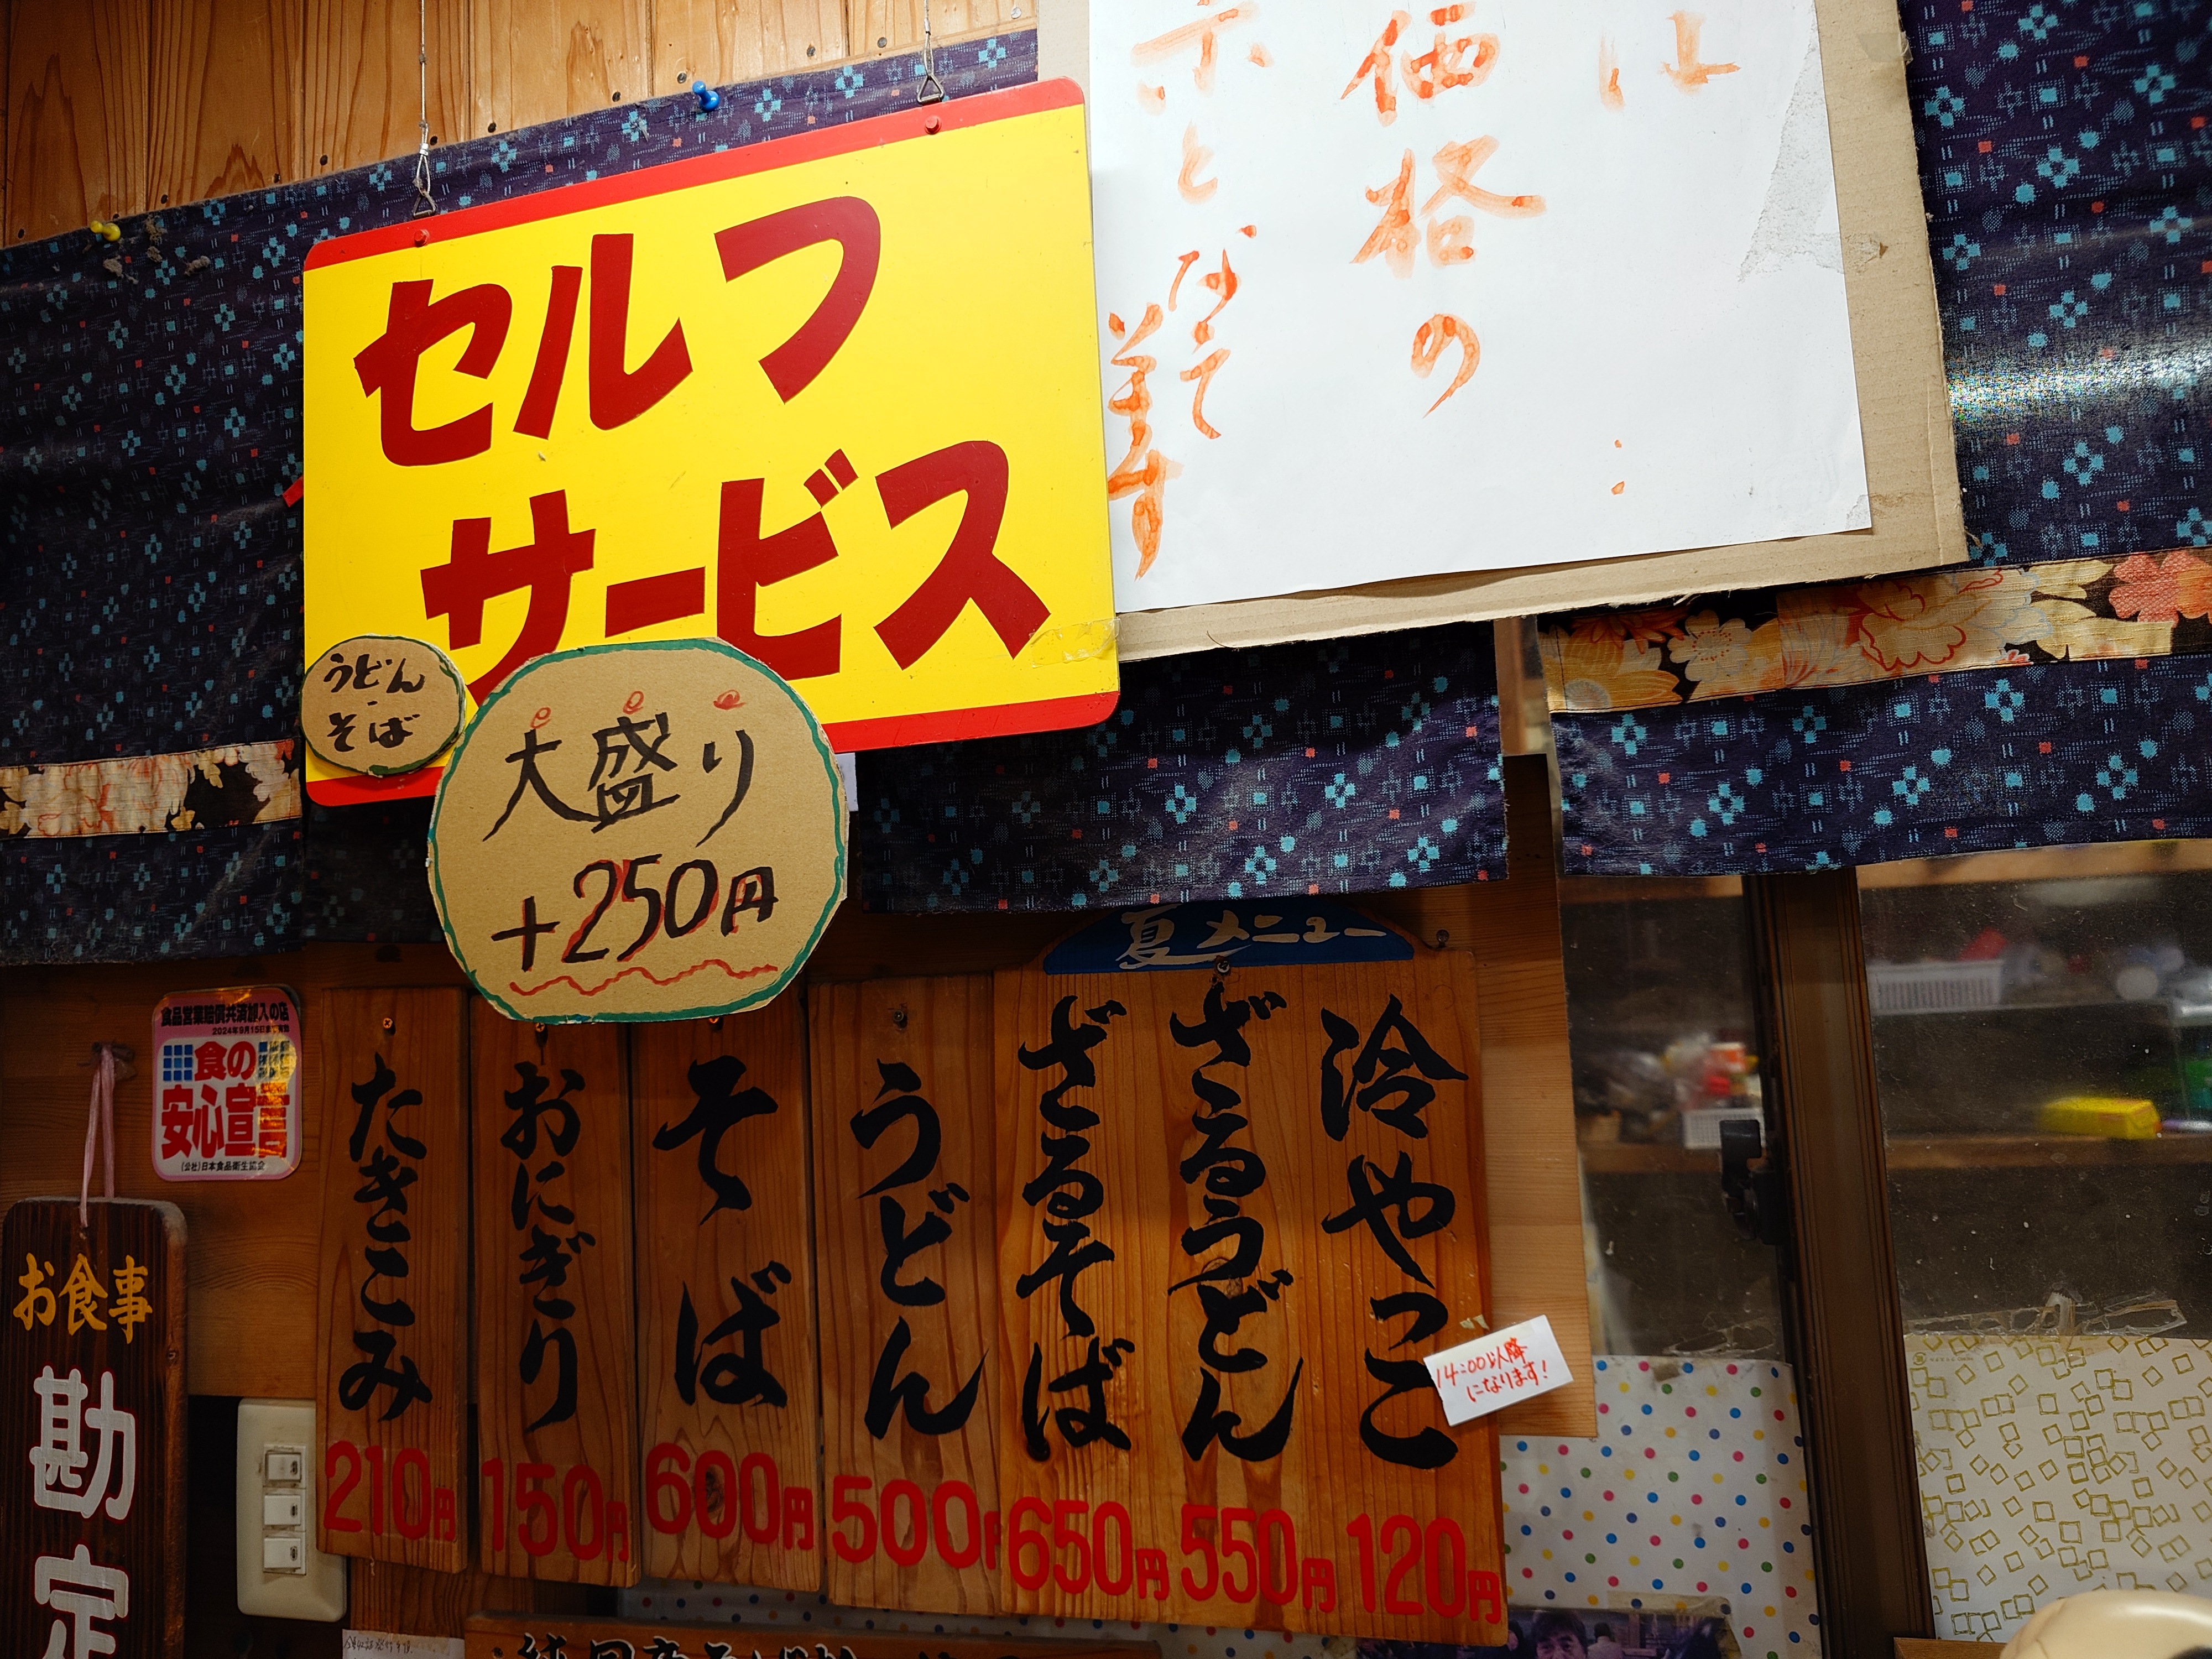 は
価格の
示となって
ます
セルフ
サービス
うどん
そば
大盛り
+250円
夏メニュー
冷やっこ
120円
ざるうどん
550円
ざるそば
650円
うどん
500円
そば
600円
おにぎり
150円
たきこみ
210円
14:00以降
になります!
食品営業賠償共済加入の店
2024年9月15日まで有効
食の
安心宣言
(公社)日本食品衛生協会
お食事
勘定